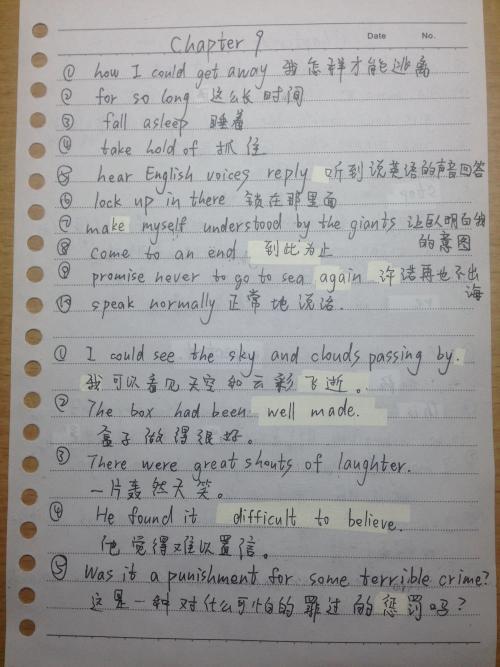 Chapter 9
Date No.
① how I could get away 我怎样才能逃离
② for so long 这么长时间
③ fall asleep 睡着
④ take hold of 抓住
⑤ hear English voices reply 听到说英语的声音回答
⑥ lock up in there 锁在那里面
⑦ make myself understood by the giants 让巨人明白我
的意图
⑧ come to an end 到此为止
⑨ promise never to go to sea again 许诺再也不出
海
⑩ speak normally 正常地说话.
① I could see the sky and clouds passing by.
我可以看见天空和云彩飞逝。
② The box had been well made.
盒子做得很好。
③ There were great shouts of laughter.
一片轰然大笑。
④ He found it difficult to believe.
他觉得难以置信。
⑤ Was it a punishment for some terrible crime?
这是一种对什么可怕的罪过的惩罚吗?